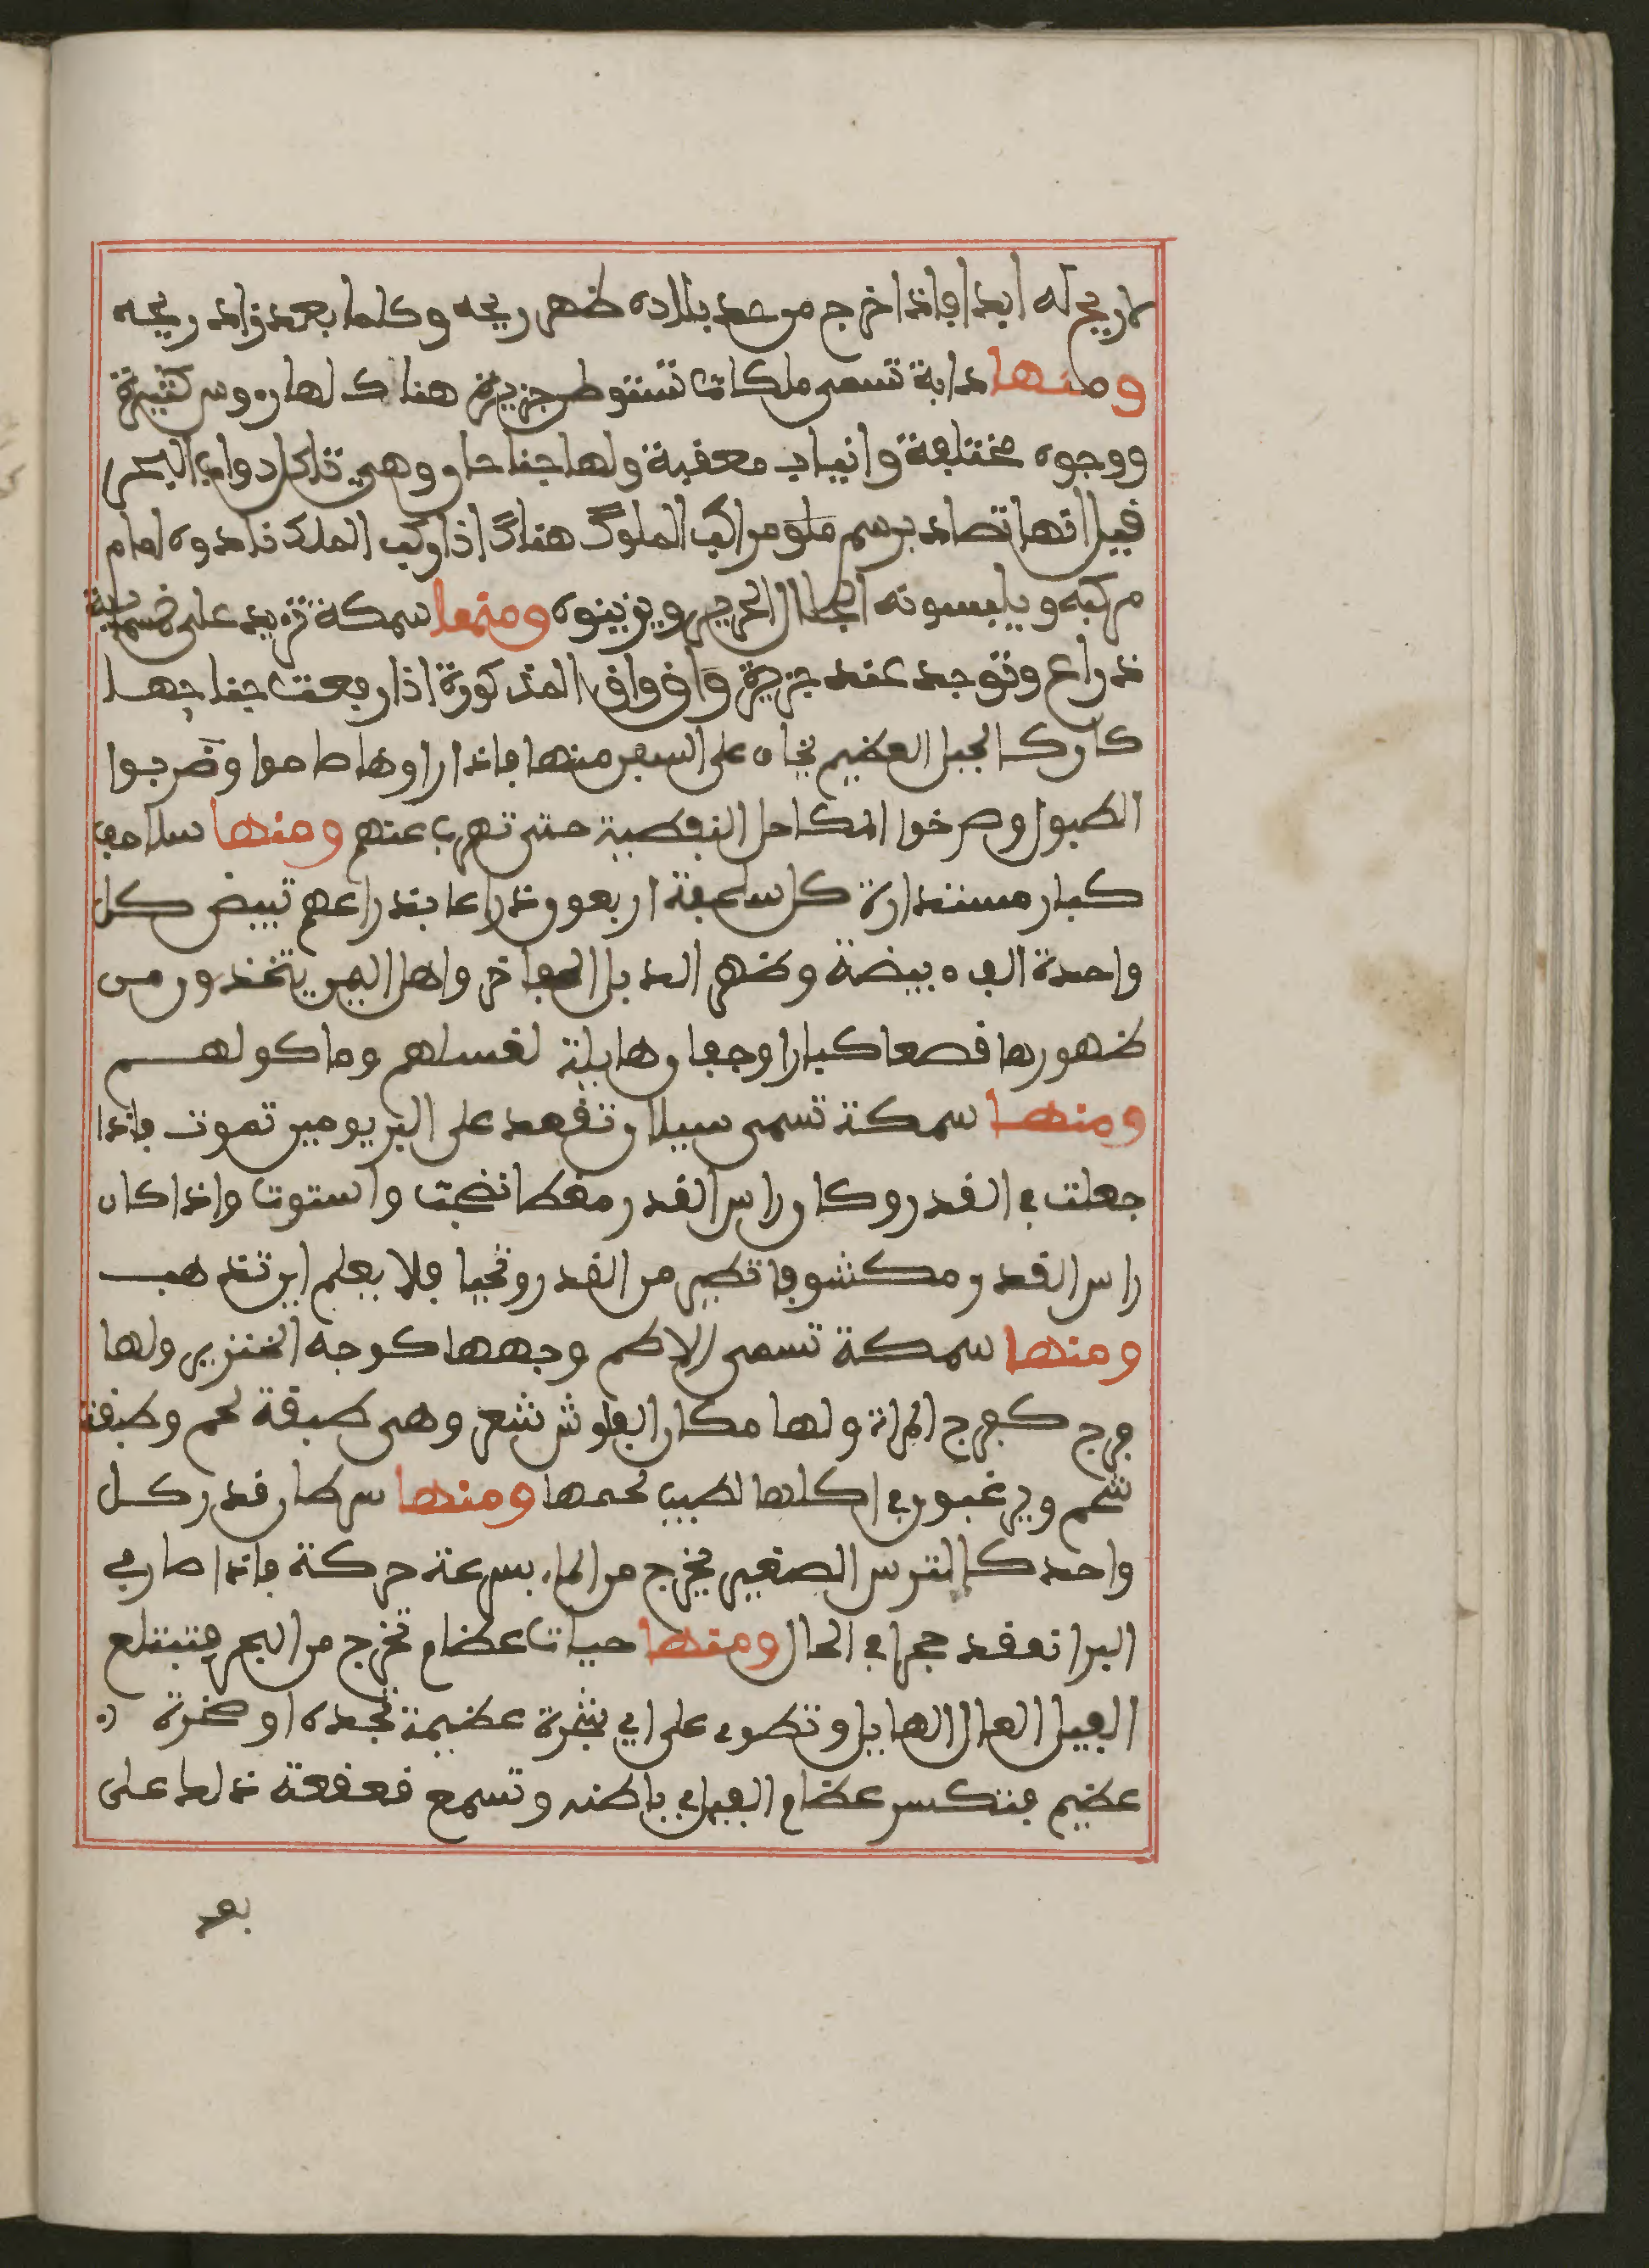 لا ريح له ابدا فاذا خرج من حد بلاده ظهر ريحه وكلما بعد زاد ريحه
ومنها دابة تسمى ملكات تستوطن جزيرة هناك لها رءوس كثيرة
ووجوه مختلفة وانياب معقبة ولها جناحان وهي تاكل دواب البحر
قيل انها تصاد برسم ملو مراكب الملوك هناك اذا ركب الملك قادوه امام
مركبه ويلبسونه الجلال الحرير ويزينوه ومنها سمكة تزيد على خمسماية
ذراع وتوجد عند جزيرة واق واق المذكورة اذا رفعت جناحها
كان كالجبل العظيم يخاف على السفن منها فاذا راوها صاحوا وضربوا
الطبول وصرخوا المكاحل النفطية حتى تهرب عنهم ومنها سلاحف
كبار مستدارة كل سلحفة اربعون ذراعا بذراعهم تبيض كل
واحدة الف بيضة وظهر الدبل الفاخر واهل اليمن يتخذون من
ظهورها قصعا كبارا وجفان هايلة لغسلهم وماكولهم
ومنها سمكة تسمى سيلان تقعد على البر يومين تموت فاذا
جعلت في القدر وكان راس القدر مغطا نضجت واستوت واذا كان
راس القدر مكشوفا تطير من القدر وتحيا فلا يعلم اين تذهب
ومنها سمكة تسمى الاطم وجهها كوجه الخنزير ولها
فرج كفرج المراة ولها مكان الفلوش شعر وهى طبقة لحم وطبقة
شحم ويرغبون في اكلها لطيب لحمها ومنها سرطان قدر كل
واحد كالترس الصغير يخرج من الماء بسرعة حركة فاذا صار في
البر انعقد حجرا في الحال ومنها حيات عظام تخرج من البحر فتبتلع
الفيل العال الهايل وتطوى على اي شجرة عظيمة تجده او صخرة
عظيم فتكسر عظام الفيل في باطنه وتسمع قعقعة ذلك على
بعد